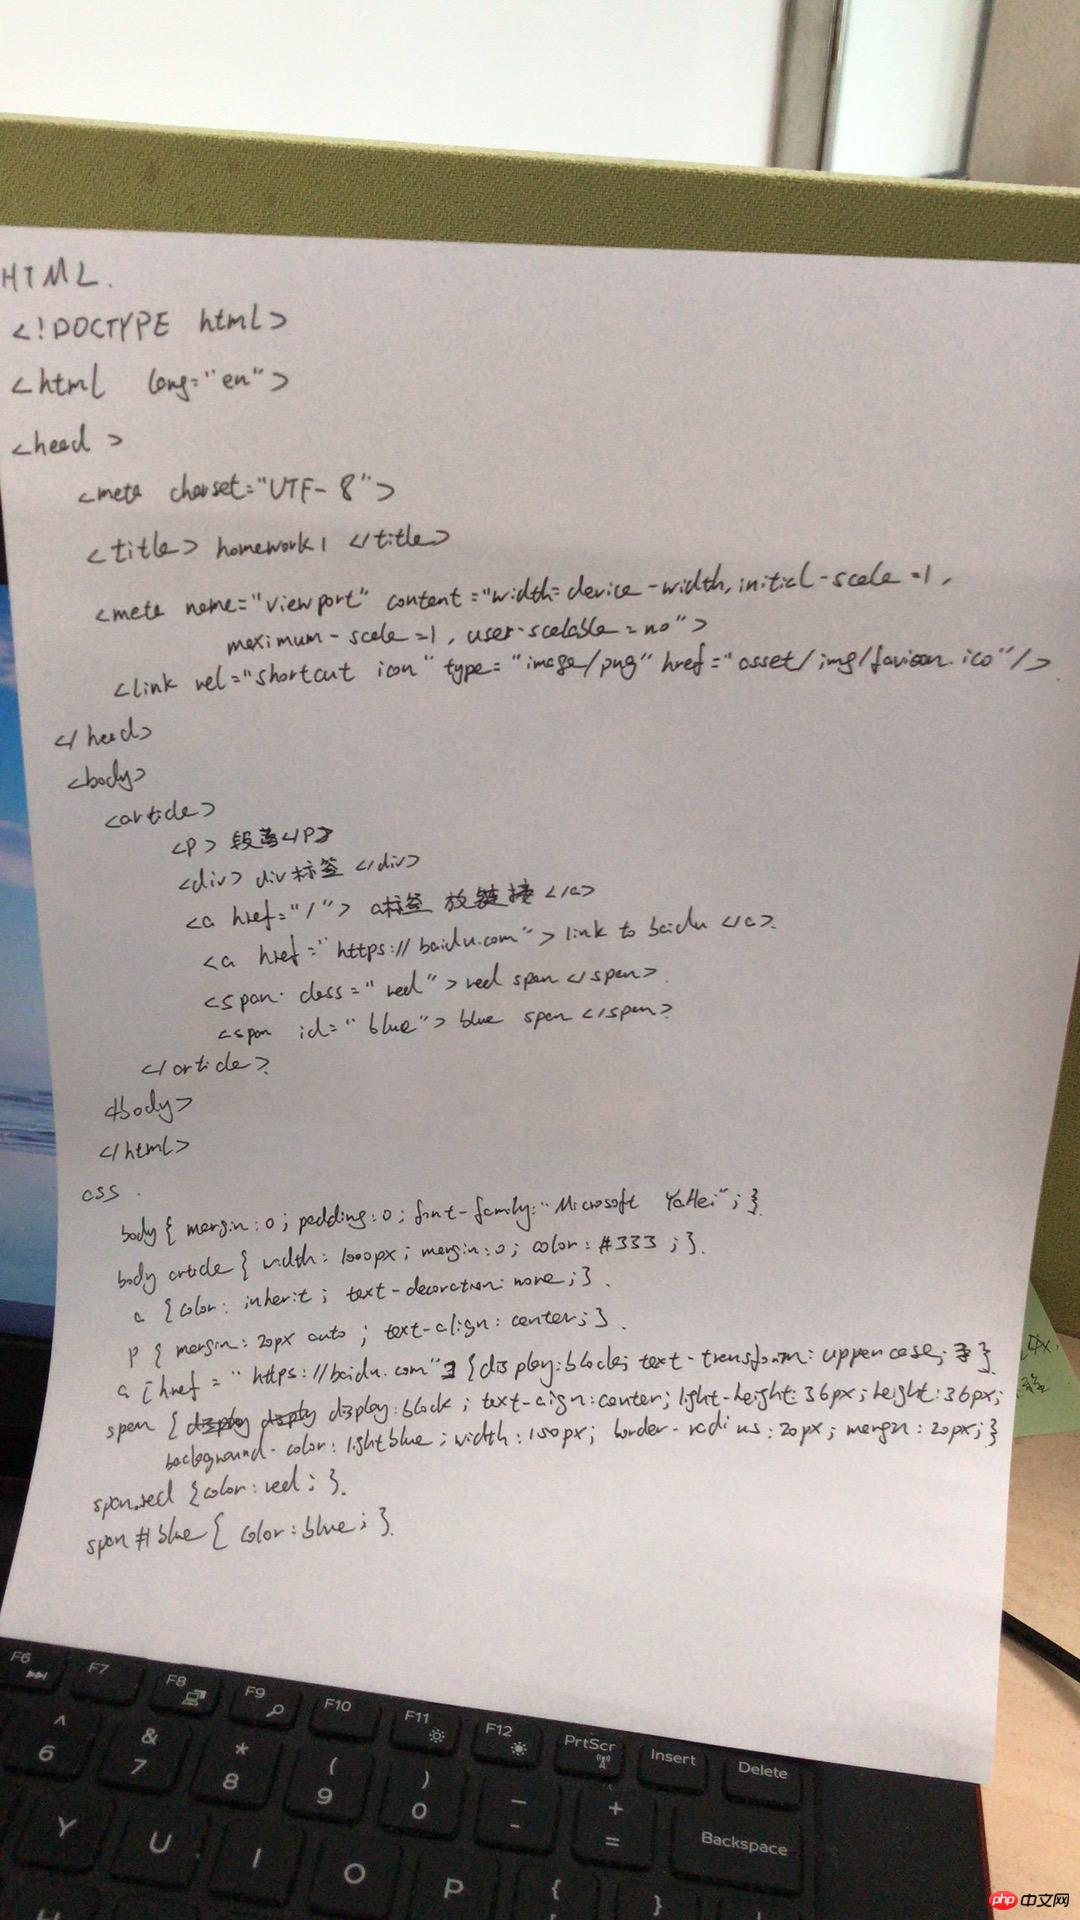 HTML.
<!DOCTYPE html>
<html lang="en">
<head>
<meta charset="UTF-8">
<title> homework1 </title>
<meta name="viewport" content="width=device-width, initial-scale=1,
maximum-scale=1, user-scalable=no">
<link rel="shortcut icon" type="image/png" href="asset/img/favicon.ico"/>.
</head>
<body>
<article>
<P> 段落</P>
<div> div标签 </div>
<a href="/"> a标签 放链接 </a>
<a href="https://baidu.com"> link to baidu </a>.
<span class="red"> red span </span>.
<span id="blue"> blue span </span>
</article>.
</body>
</html>
css.
body { margin:0; padding:0; font-family:"Microsoft YaHei"; }.
body article { width: 1000px; margin:0; color:#333; }.
a {color: inherit; text-decoration: none; }.
p { margin: 20px auto; text-align: center; }.
a [href = "https://baidu.com"] {display:block; text-transform: uppercase; }
span { display: block; text-aign:center; light-height:36px; height:36px;
background-color: lightblue; width:150px; border-radius:20px; margin:20px; }
span.red {color: red; }.
span #blue { color: blue; }.
中文
F6
F7
F8
F9
F10
F11
F12
PrtScr
Insert
Delete
^
6
&
7
*
8
(
9
)
0
_
-
+
=
Backspace
Y
U
I
O
P
{
}
php 中文网